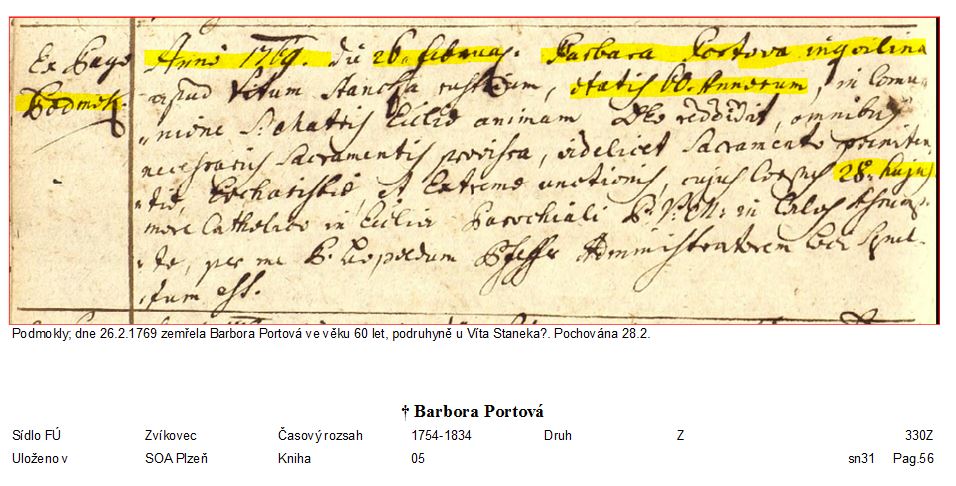 Ex Pago
Podmok:
Anno 1769. Die 26. februar: Barbara Portova inquilina
apud Vitum rusticum, etatis 60. Annorum, in Comu
nione S: Matris Eccliæ animam Deo reddidit, omnibus
necessariis Sacramentis provisa, videlicet Sacramento pœniten,
tiæ, Eucharistiæ, et Extremæ unctionis, cujus corpus 28. hujus
more Catholico in Ecclia Parochiali B: V: M: in Cælos Assump
tæ, per me P. Leopoldum Administratorem loci sepul
tum est.
Podmokly; dne 26.2.1769 zemřela Barbora Portová ve věku 60 let, podruhyně u Víta Staneka?. Pochována 28.2.
† Barbora Portová
Sídlo FÚ Zvíkovec Časový rozsah 1754-1834 Druh Z 330Z
Uloženo v SOA Plzeň Kniha 05 sn31 Pag.56